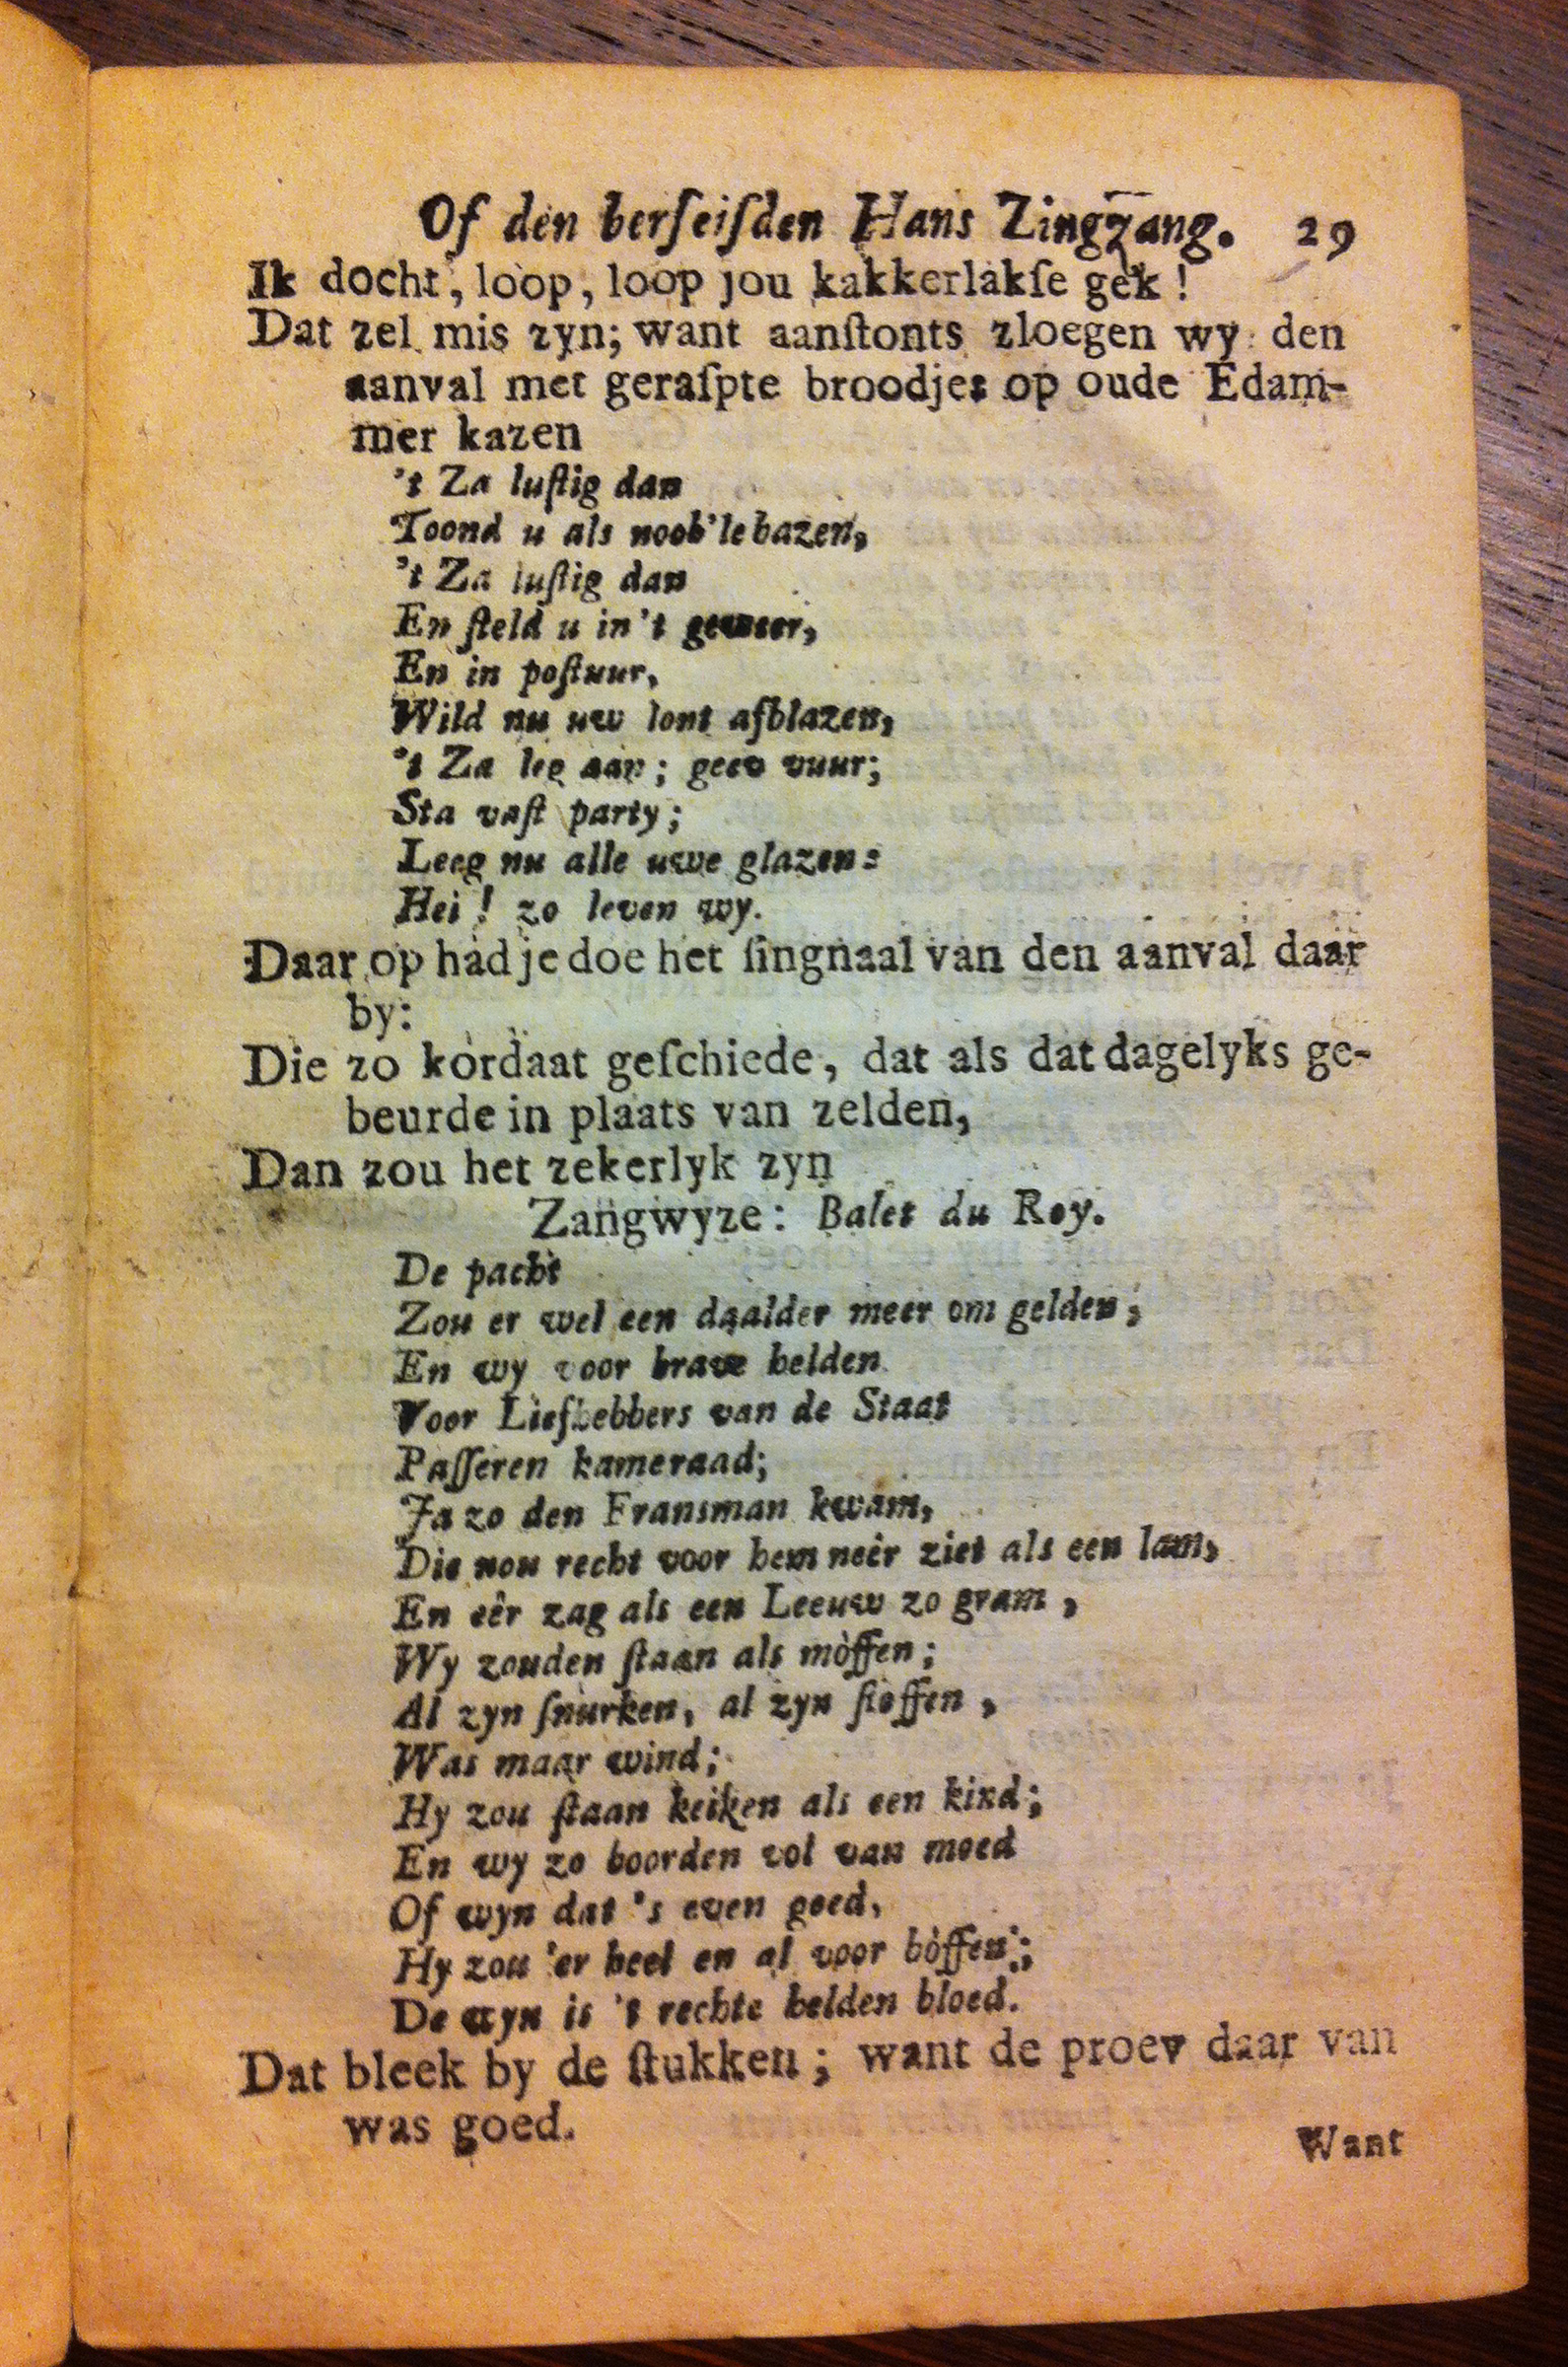 Of den herſeiſden Hans Zingzang. 29
Ik docht, loop, loop jou kakkerlakſe gek!
Dat zel mis zyn; want aanſtonts zloegen wy den
aanval met geraſpte broodjes op oude Edam-
mer kazen
't Za luſtig dan
Toond u als noob'le bazen,
't Za luſtig dan
En ſteld u in 't geweer,
En in poſtuur,
Wild nu uw lont afblazen,
't Za leg aan; geev vuur;
Sta vaſt party;
Leeg nu alle uwe glazen:
Hei! zo leven wy.
Daar op had je doe het ſingnaal van den aanval daar
by:
Die zo kordaat geſchiede, dat als dat dagelyks ge-
beurde in plaats van zelden,
Dan zou het zekerlyk zyn
Zangwyze: Balet du Roy.
De pacht
Zou er wel een daalder meer om gelden,
En wy voor brave helden
Voor Liefhebbers van de Staat
Paſſeren kameraad;
Ja zo den Fransman kwam,
Die nou recht voor hem neêr ziet als een lam,
En eêr zag als een Leeuw zo gram,
Wy zouden ſtaan als mòffen;
Al zyn ſnurken, al zyn ſtoffen,
Was maar wind;
Hy zou ſtaan keiken als een kind;
En wy zo boorden vol van moed
Of wyn dat 's even goed,
Hy zou 'er heel en al voor bòffen;
De wyn is 't rechte helden bloed.
Dat bleek by de ſtukken; want de proev daar van
was goed.
Want